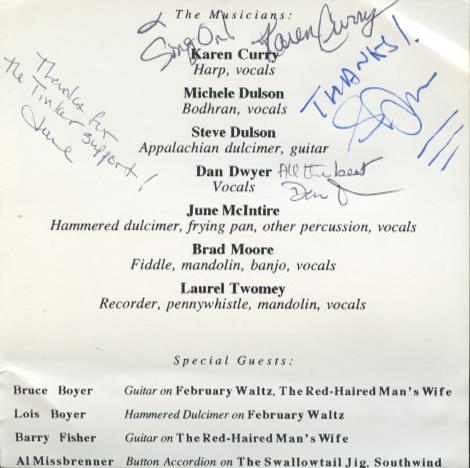 The Musicians:
& Sing On! Karen Curry
Karen Curry
Harp, vocals
THANKS!
Michele Dulson
Bodhran, vocals
Thanks for
the Tinker support!
June
Steve Dulson
Appalachian dulcimer, guitar
Dan Dwyer All the best
Vocals Dan
June McIntire
Hammered dulcimer, frying pan, other percussion, vocals
Brad Moore
Fiddle, mandolin, banjo, vocals
Laurel Twomey
Recorder, pennywhistle, mandolin, vocals
Special Guests:
Bruce Boyer Guitar on February Waltz, The Red-Haired Man's Wife
Lois Boyer Hammered Dulcimer on February Waltz
Barry Fisher Guitar on The Red-Haired Man's Wife
Al Missbrenner Button Accordion on The Swallowtail Jig, Southwind